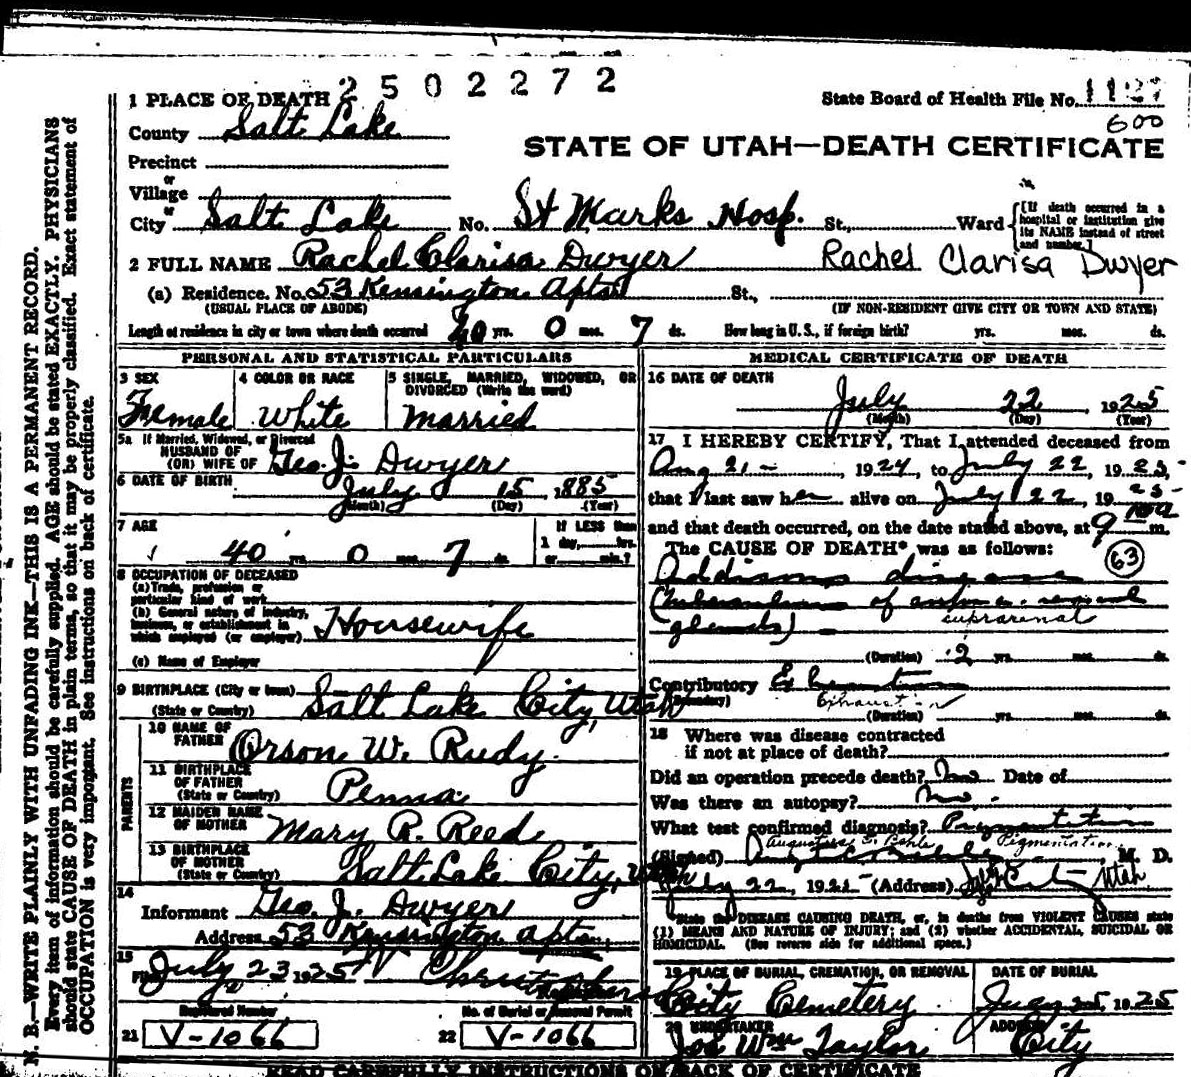 2502272
1 PLACE OF DEATH
State Board of Health File No. 1127
600
County Salt Lake
STATE OF UTAH—DEATH CERTIFICATE
Precinct
or
Village
or
City Salt Lake No. St Marks Hosp. St., Ward [If death occurred in a hospital or institution give its NAME instead of street and number.]
2 FULL NAME Rachel Clarisa Dwyer Rachel Clarisa Dwyer
(a) Residence. No. 53 Kensington Apts St.,
(USUAL PLACE OF ABODE) (IF NON-RESIDENT GIVE CITY OR TOWN AND STATE)
Length of residence in city or town where death occurred 40 yrs. 0 mos. 7 ds. How long in U. S., if foreign birth? yrs. mos. ds.
PERSONAL AND STATISTICAL PARTICULARS
3 SEX
Female
4 COLOR OR RACE
White
5 SINGLE, MARRIED, WIDOWED, OR
DIVORCED (Write the word)
Married
5a If Married, Widowed, or Divorced
HUSBAND OF
(OR) WIFE OF Geo. J. Dwyer
6 DATE OF BIRTH July 15, 1885
(Month) (Day) (Year)
7 AGE
40 yrs. 0 mos. 7 ds.
If LESS than
1 day, hrs.
or min.?
8 OCCUPATION OF DECEASED
(a) Trade, profession or
particular kind of work
(b) General nature of industry,
business, or establishment in
which employed (or employer) Housewife
(c) Name of Employer
9 BIRTHPLACE (City or town)
(State or Country) Salt Lake City, Utah
PARENTS
10 NAME OF
FATHER Orson W. Rudy.
11 BIRTHPLACE
OF FATHER
(State or Country) Penna
12 MAIDEN NAME
OF MOTHER Mary R. Reed
13 BIRTHPLACE
OF MOTHER
(State or Country) Salt Lake City, Utah
14
Informant Geo. J. Dwyer
Address 53 Kensington Apts.
15
Filed July 23 1925
Registrar
Registered Number
21 V-1066
No. of Burial or Removal Permit
22 V-1066
MEDICAL CERTIFICATE OF DEATH
16 DATE OF DEATH
July 22, 1925
(Month) (Day) (Year)
17 I HEREBY CERTIFY, That I attended deceased from
Aug 21-, 1924, to July 22, 1925
that I last saw her alive on July 22, 1925
and that death occurred, on the date stated above, at 9 m.
The CAUSE OF DEATH* was as follows:
63
Addisons disease
(Tuberculosis of supra-renal
glands)
suprarenal
(Duration) 2 yrs. mos. ds.
Contributory Exhaustion
(Secondary) Exhaustion
(Duration) yrs. mos. ds.
18 Where was disease contracted
if not at place of death?
Did an operation precede death? No Date of
Was there an autopsy? No.
What test confirmed diagnosis? Pigmentation
Pigmentation
(Signed) M. D.
July 22, 1925 (Address) Utah
*State the DISEASE CAUSING DEATH, or, in deaths from VIOLENT CAUSES state
(1) MEANS AND NATURE OF INJURY; and (2) whether ACCIDENTAL, SUICIDAL OR
HOMICIDAL. (See reverse side for additional space.)
19 PLACE OF BURIAL, CREMATION, OR REMOVAL
City Cemetery
DATE OF BURIAL
July 25, 1925
20 UNDERTAKER
Jos Wm Taylor
ADDRESS
City
READ CAREFULLY INSTRUCTIONS ON BACK OF CERTIFICATE
N. B.—WRITE PLAINLY WITH UNFADING INK—THIS IS A PERMANENT RECORD.
Every item of information should be carefully supplied. AGE should be stated EXACTLY. PHYSICIANS
should state CAUSE OF DEATH in plain terms, so that it may be properly classified. Exact statement of
OCCUPATION is very important. See instructions on back of certificate.